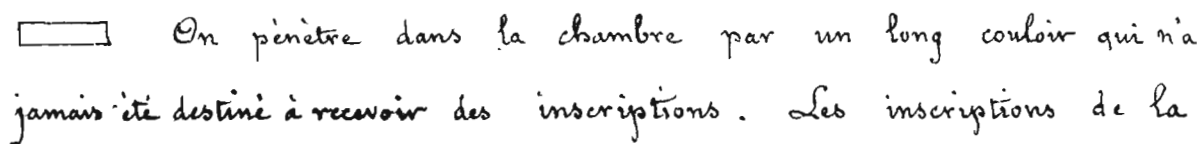 On pénètre dans la chambre par un long couloir qui n'a
jamais été destiné à recevoir des inscriptions. Les inscriptions de la